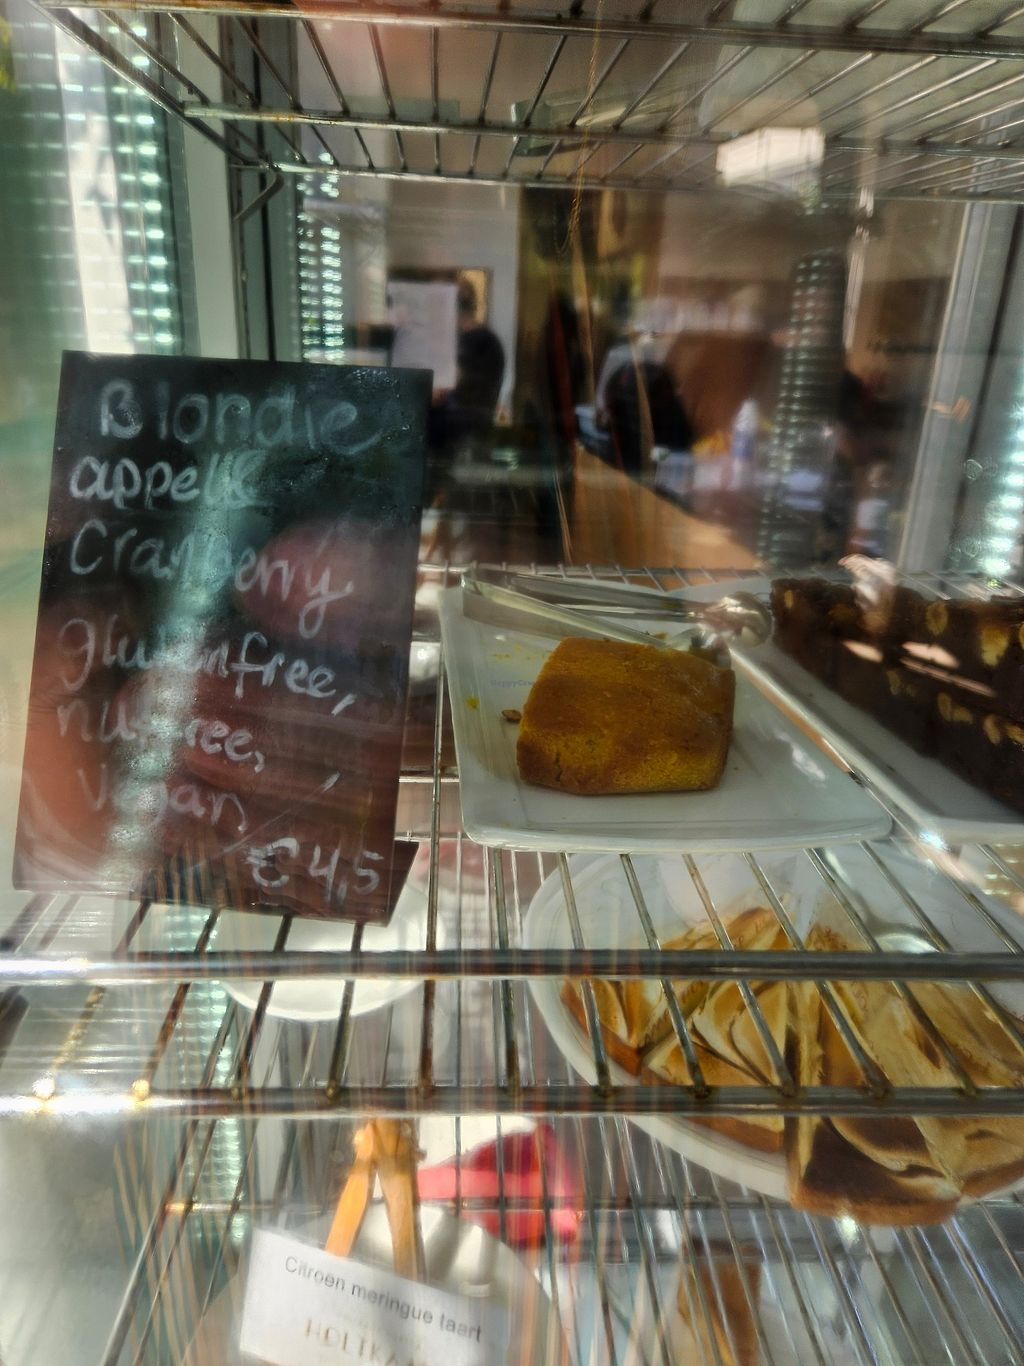 Blondie
appelk
Cranberry
glutenfree,
nutfree,
vegan
€4,5
HappyCow
Citroen meringue taart
HOLTKA